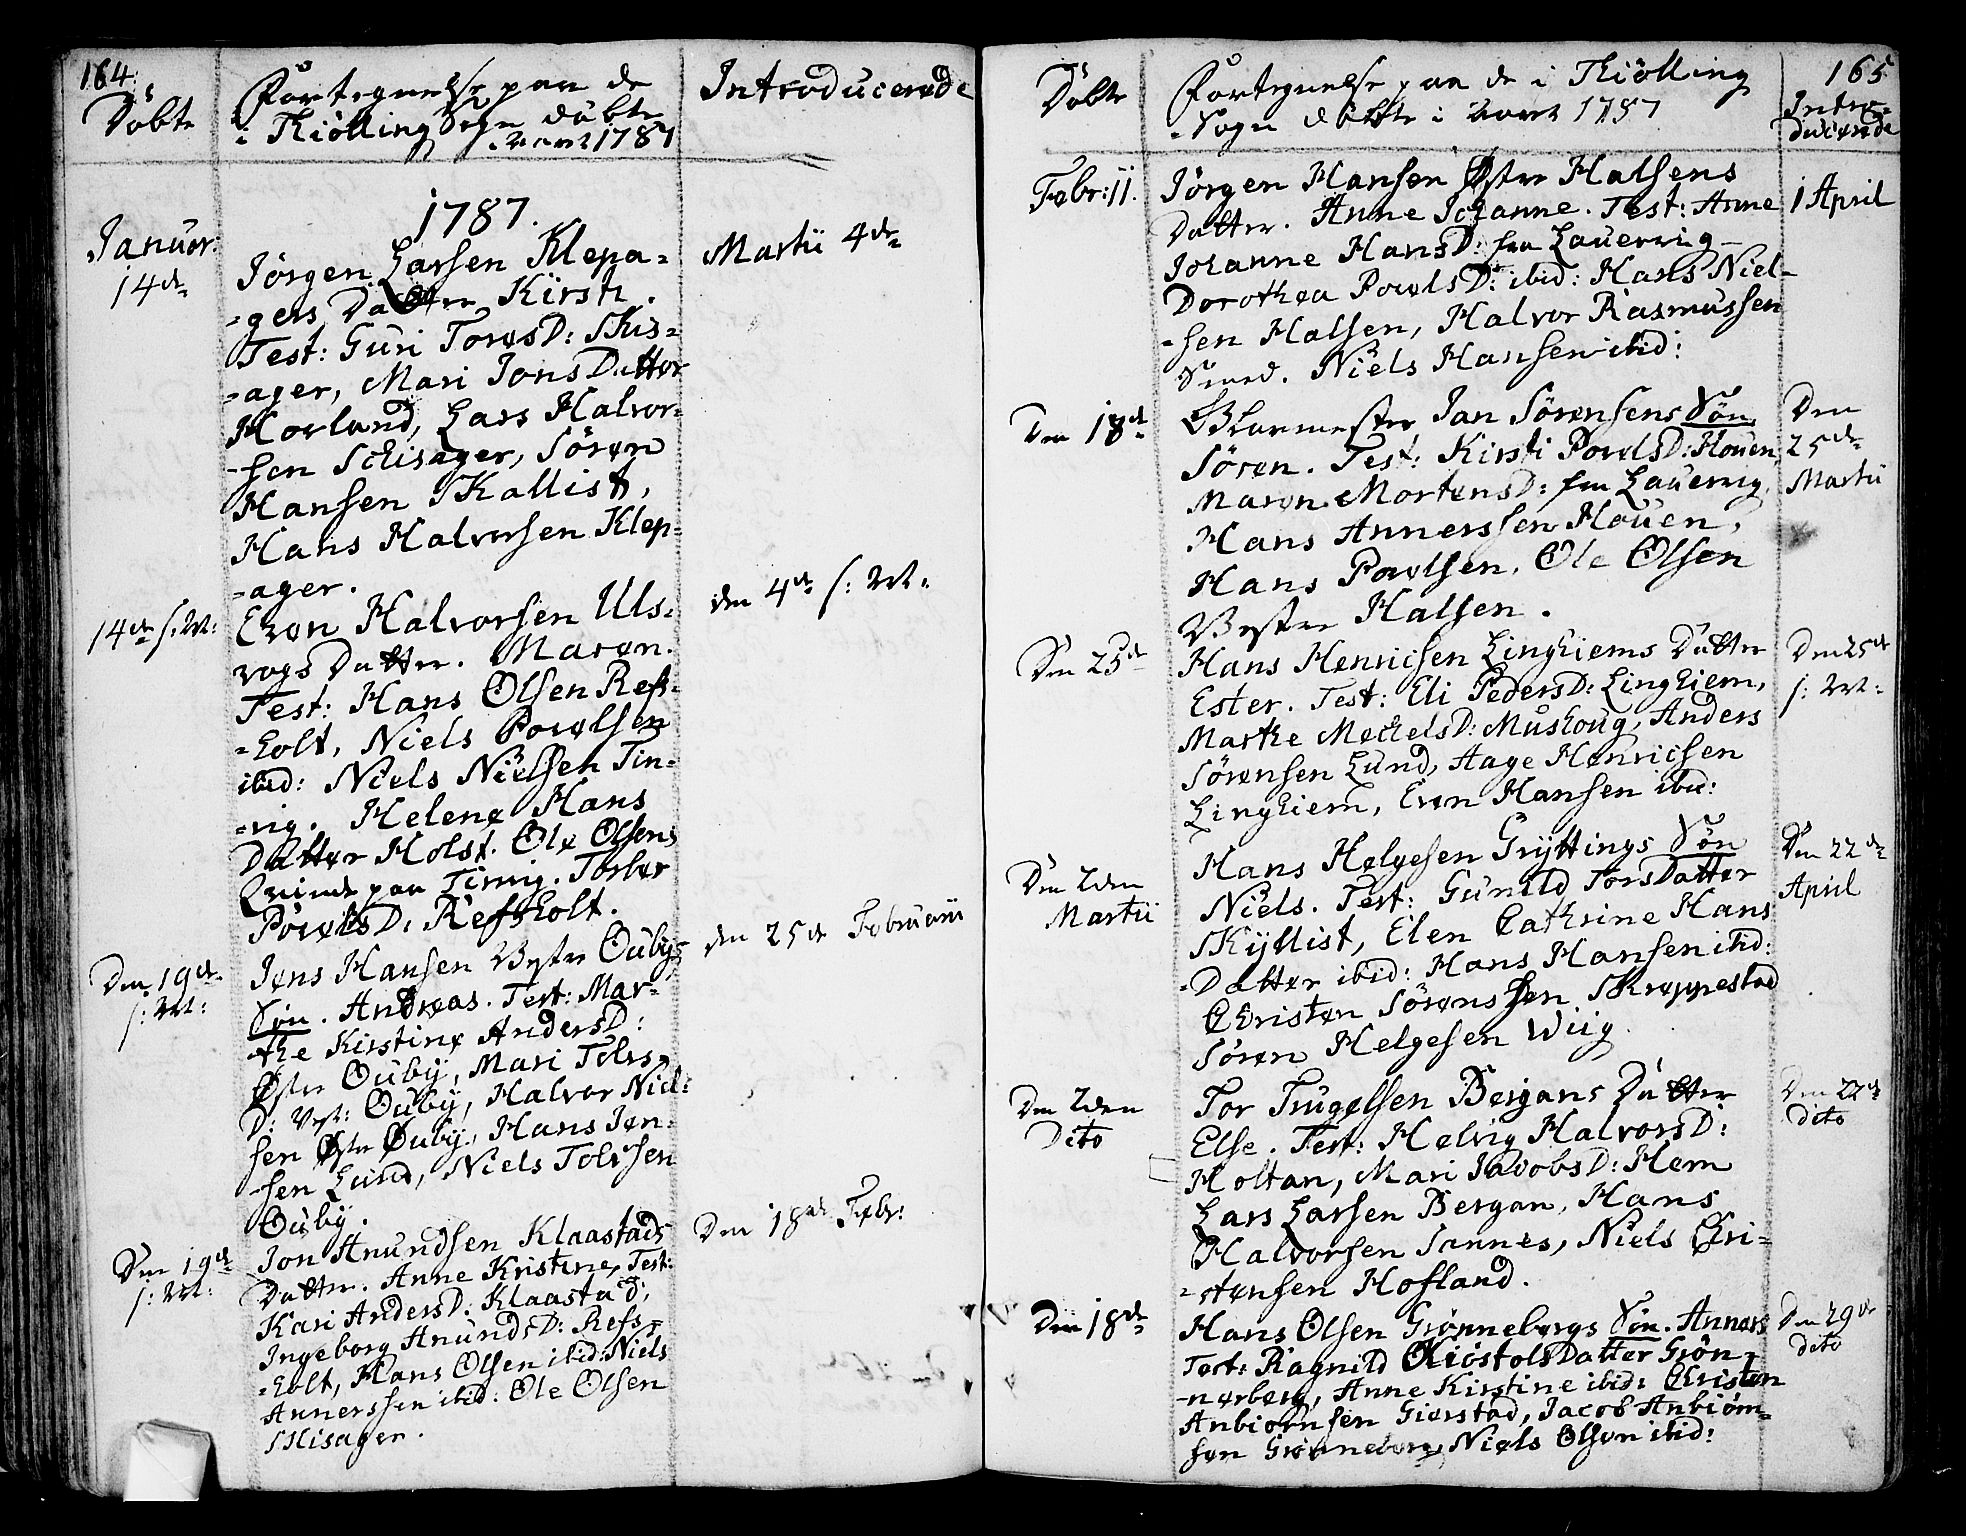 164.
Döbte
Fortegnelse paa de
i Kiölling Sogn döbte
Aaret 1787
Introducerede
1787.
Januar:
14de
Jörgen Larsen Klepa-
-gers Datter Kirsti.
Test: Guri ToresD: Skis-
-ager, Mari Jons Datter
Hovland, Lars Halvor-
-sen Schisager, Sören
Hansen Skallist,
Hans Halvorsen Klep-
-ager.
Martii 4de
14de s: M:
Even Halvorsen Uls-
vogs Datter. Maren.
Test: Hans Olsen Refs-
-holt, Niels Povelsen
ibid: Niels Nielsen Tin-
-vig. Helene Hans
Datter Holst. Ole Olsens
Qvinde paa Tinvig. Torber
PovelsD: Refsholt.
den 4de s: M:
Den 19de
s: M:
Jens Hansen Vestre Oubys
Sön. Andreas. Test: Mar-
-the Kirstine AndersD:
Öster Oubÿ, Mari Tolvs
D: Vest: Oubÿ, Halvor Niel-
sen Öster Oubÿ, Hans Jen-
-sen Lund, Niels Tolvsen
Oubÿ.
den 25de Februarii
Den 19de
s: M:
Jon Anundsen Klaastads
Datter. Anne Kristine, Test:
Kari AndersD: Klaastad,
Ingeborg AnundsD: Refs-
-holt, Hans Olsen ibid: Niels
Annerssen ibid: Ole Olsen
Skisager.
Den 18de Febr:
165
Döbte
Fortegnelse paa de i Kiölling
-Sogn döbte i Aaret 1787
Intro-
ducerede
Febr: 11.
Jörgen Hansen Östre Halsens
Datter. Anne Johanne. Test: Anne
Johanne HansD: fra Lauervig
Dorothea PovelsD: ibid: Hans Niel-
-sen Halsen, Halvor Rasmussen
Smed. Niels Hansen ibid:
1 April
Den 18de
Glarmester Jan Sörensens Sön
Sören. Test: Kirsti PovelsD: Houen,
Maren MortensD: fra Lauervig,
Hans Annerssen Houen,
Hans Povelsen, Ole Olsen
Vestre Halsen.
Den
25de
Martii
Den 25de
Hans Henricsen Linghiems Datter
Ester. Test: Eli PedersD: Linghiem,
Marthe MechelsD: Mushoug, Anders
Sörensen Lund, Aage Henricsen
Linghiem, Even Hansen ibid:
Den 25de
s: M:
Den 2den
Martii
Hans Helgesen Grÿttings Sön
Niels. Test: Gunild Tors Datter
Skÿllist, Elen Cathrine Hans
-Datter ibid: Hans Hansen ibid:
Christen Sörenssen Skreppestad
Sören Helgesen Wiig
Den 22de
April
Den 2den
Dito
Tor Trugelsen Bergans Datter
Else. Test: Helvig HalvorsD:
Holtan, Mari JacobsD: Hem
Lars Larsen Bergan, Hans
Halvorsen Sannes, Niels Chri-
-stensen Hofland.
Den 22de
dito
Den 18de
Hans Olsen Grönnebergs Sön. Anners
Test: Ragnild Kiöstols Datter Grön-
-nerberg, Anne Kirstine ibid: Christen
Anbiörnsen Gierstad, Jacob Anbiörn-
sen Grönneberg, Niels Olsen ibid:
Den 29de
dito